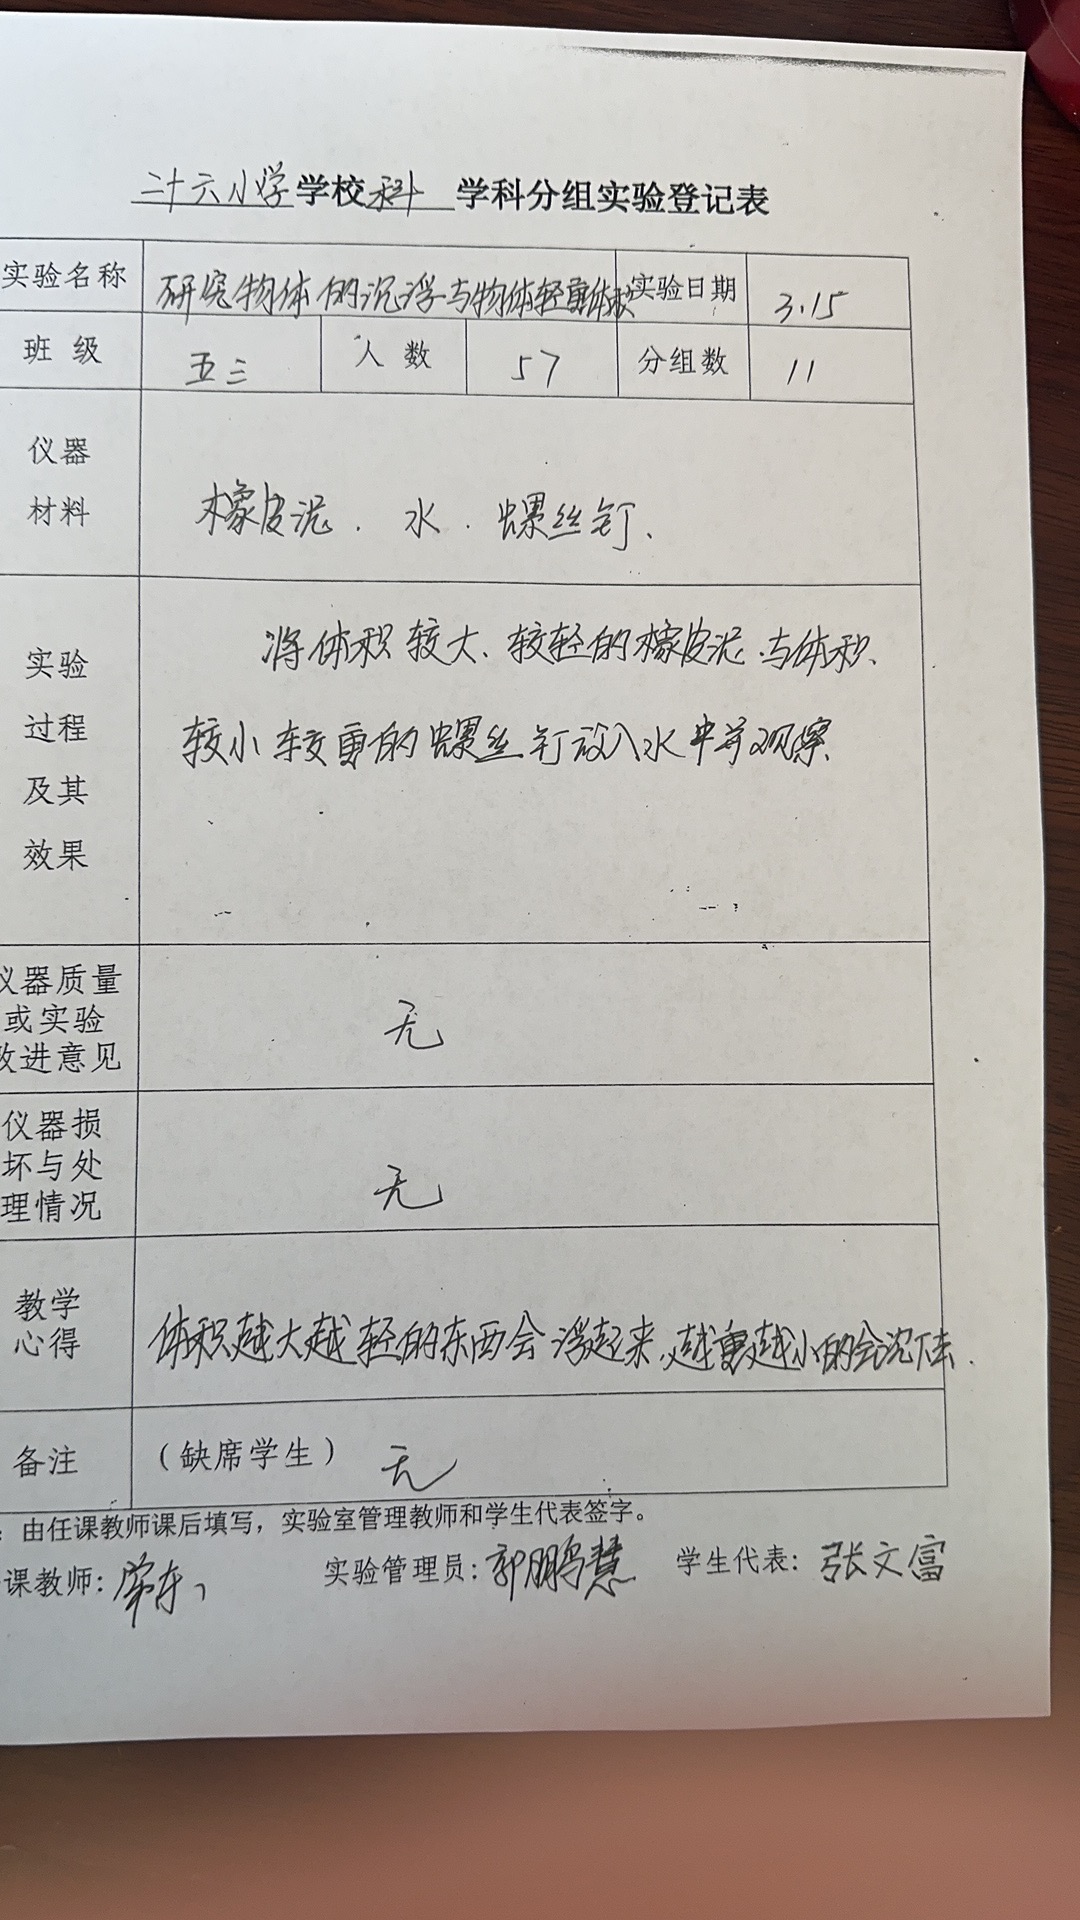 二十六小学学校科 学科分组实验登记表
实验名称 研究物体的沉浮与物体轻重体积 实验日期 3.15
班 级 五三 人 数 57 分组数 11
仪器
材料
橡皮泥. 水. 螺丝钉.
实验
过程
及其
效果
将体积较大、较轻的橡皮泥与体积
较小较重的螺丝钉放入水中并观察
仪器质量
或实验
改进意见
无
仪器损
坏与处
理情况
无
教学
心得
体积越大越轻的东西会浮起来,越重越小的会沉下去.
备注 (缺席学生) 无
:由任课教师课后填写,实验室管理教师和学生代表签字。
课教师: 实验管理员:郭鹏慧 学生代表:张文富